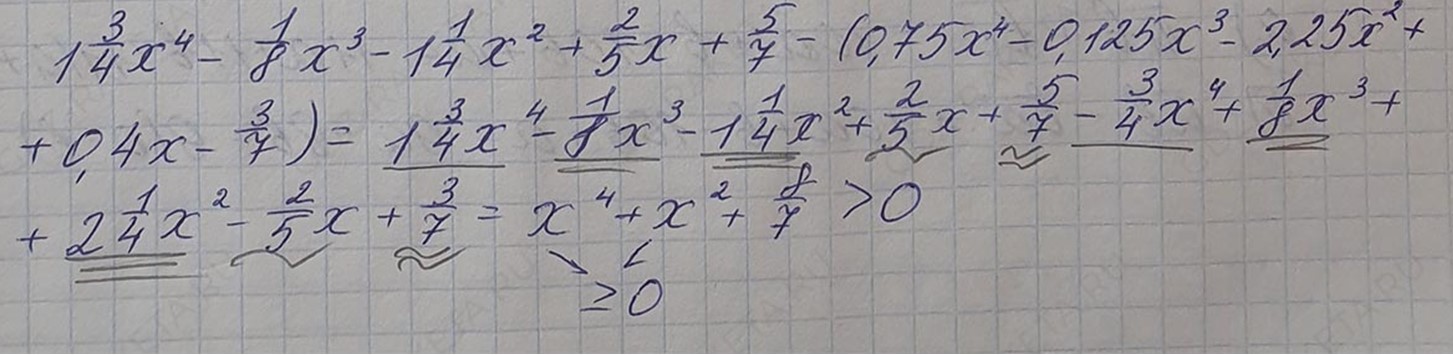 1 3/4 x⁴ - 1/8 x³ - 1 1/4 x² + 2/5 x + 5/7 - (0,75x⁴ - 0,125x³ - 2,25x² +
+ 0,4x - 3/7) = 1 3/4 x⁴ - 1/8 x³ - 1 1/4 x² + 2/5 x + 5/7 - 3/4 x⁴ + 1/8 x³ +
+ 2 1/4 x² - 2/5 x + 3/7 = x⁴ + x² + 8/7 > 0
≥ 0